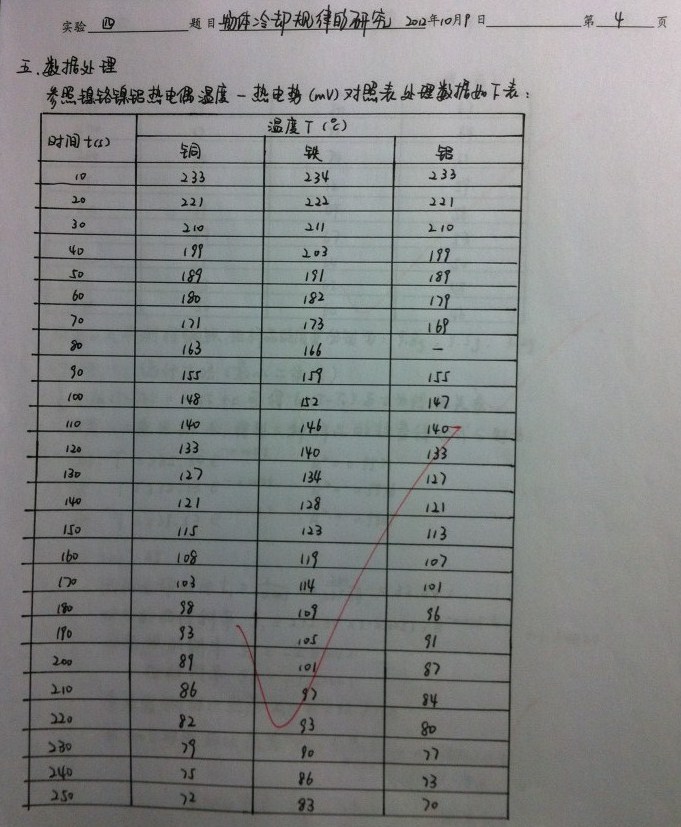 实验 四 题目 物体冷却规律的研究 2012年10月9日 第 4 页
五.数据处理
参照镍铬镍铝热电偶温度-热电势(mV)对照表处理数据如下表:
时间t(s) 温度T(℃)
铜 铁 铝
10 233 234 233
20 221 222 221
30 210 211 210
40 199 203 199
50 189 191 189
60 180 182 179
70 171 173 169
80 163 166 —
90 155 159 155
100 148 152 147
110 140 146 140
120 133 140 133
130 127 134 127
140 121 128 121
150 115 123 113
160 108 119 107
170 103 114 101
180 98 109 96
190 93 105 91
200 89 101 87
210 86 97 84
220 82 93 80
230 79 90 77
240 75 86 73
250 72 83 70